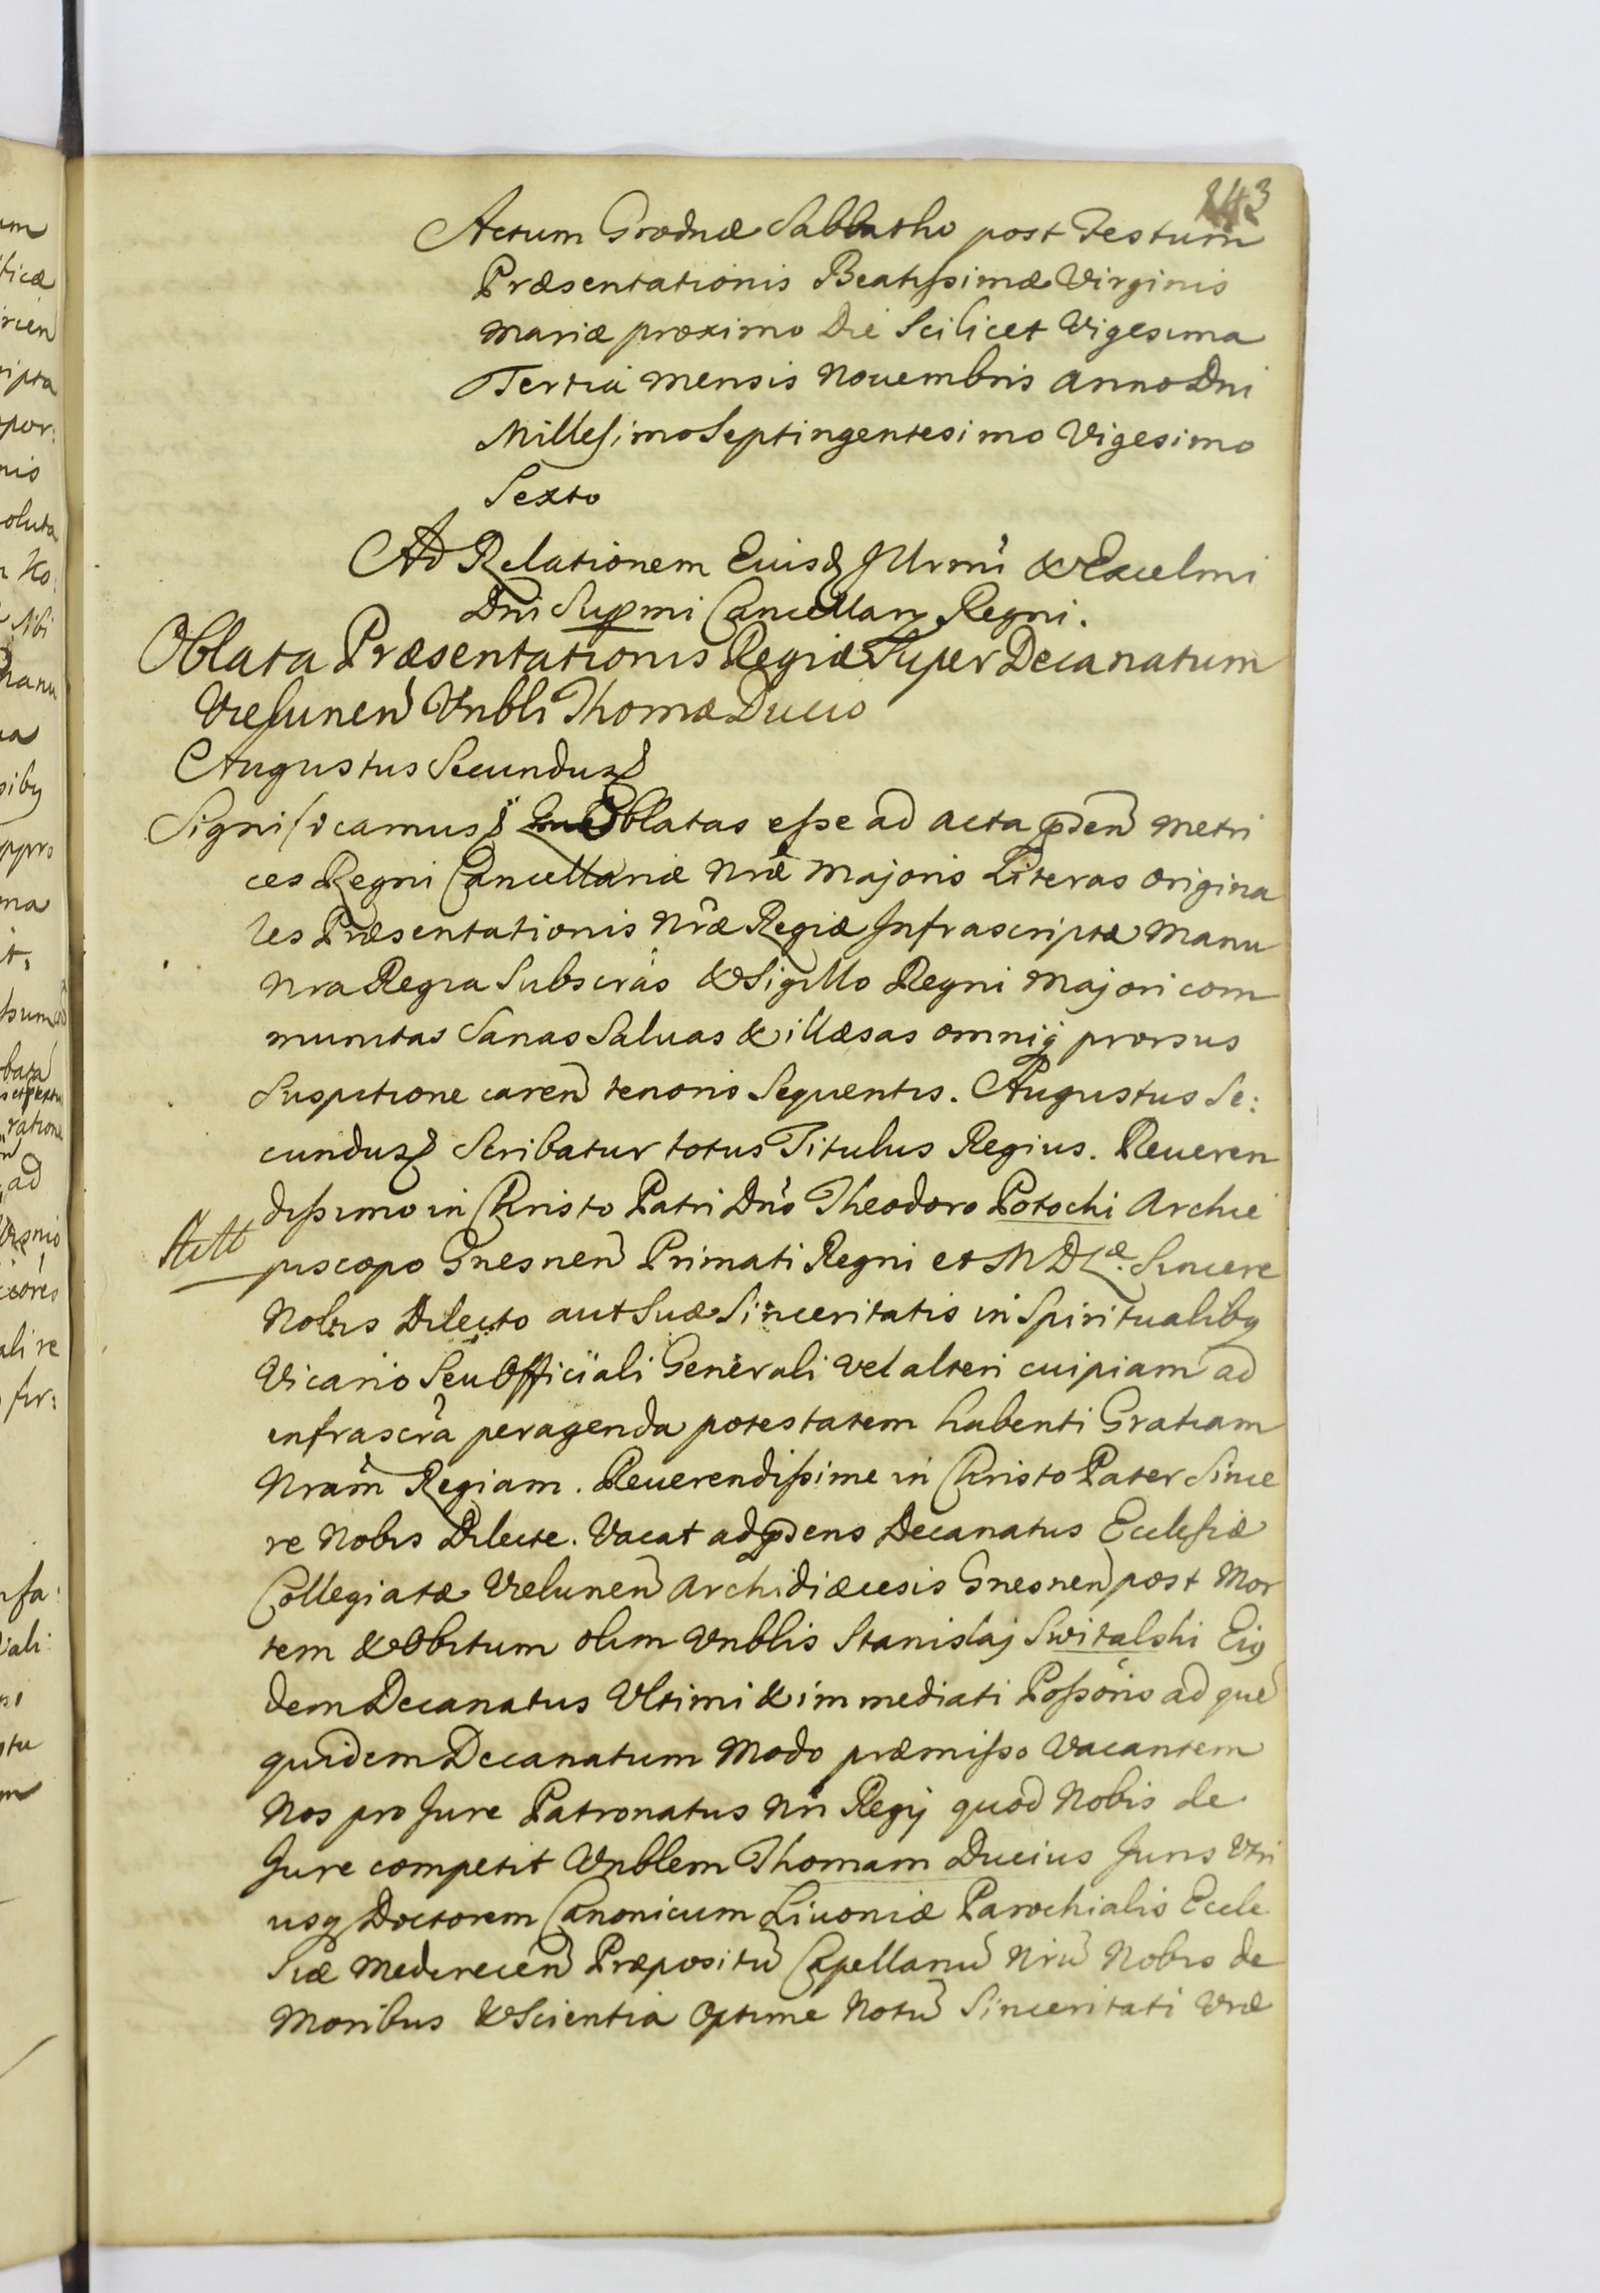 243
Actum Grodnæ Sabbatho post Festum
Præsentationis Beatissimæ Virginis
Mariæ proximo Die Scilicet Vigesima
Tertia mensis Novembris anno Dni
Millesimo Septingentesimo Vigesimo
Sexto
Ad Relationem Eiusd Illrmi & Excelmi
Dni Suppmi Cancellarij Regni.
Oblata Præsentationis Regiæ Super Decanatum
Vielunen Vnbli Thomæ Ducio
Augustus Secundus
Significamus Oblatas esse ad acta pñden Metri
ces Regni Cancellariæ Nræ Majoris Literas origina
les Præsentationis Nræ Regiæ Infrascriptæ Manu
Nra Regia Subscras & Sigillo Regni Majori com
munitas Sanas Saluas & illæsas omniq prorsus
Suspitione caren tenoris Sequentis. Augustus Se:
cundus Scribatur totus Titulus Regius. Reueren
dissimo in Christo Patri Dno Theodoro Potocki Archie
piscopo Gnesnen Primati Regni et M D L æ. Sincere
Nobis Dilecto aut Suæ Sinceritatis in Spiritualibq
Vicario Seu Officiali Generali vel alteri cuipiam ad
infrascra peragenda potestatem habenti Gratiam
Nram Regiam. Reuerendissime in Christo Pater Since
re Nobis Dilecte. Vacat ad psens Decanatus Ecclesiæ
Collegiatæ Vielunen Archidiæcesis Gnesnen post Mor
tem & Obitum olim Vnblis Stanislaj Switalski Eiq
dem Decanatus Vltimi & immediati Possoris ad que
quidem Decanatum Modo præmisso Vacantem
Nos pro Jure Patronatus Nri Regij quod Nobis de
Jure competit Vnblem Thomam Ducius Juris Vtri
usq Doctorem Canonicum Liuoniæ Parochialis Eccle
siæ Medirecen Præpositu Capellanu Nru Nobis de
Moribus & Scientia Optime Notu Sinceritati Vræ